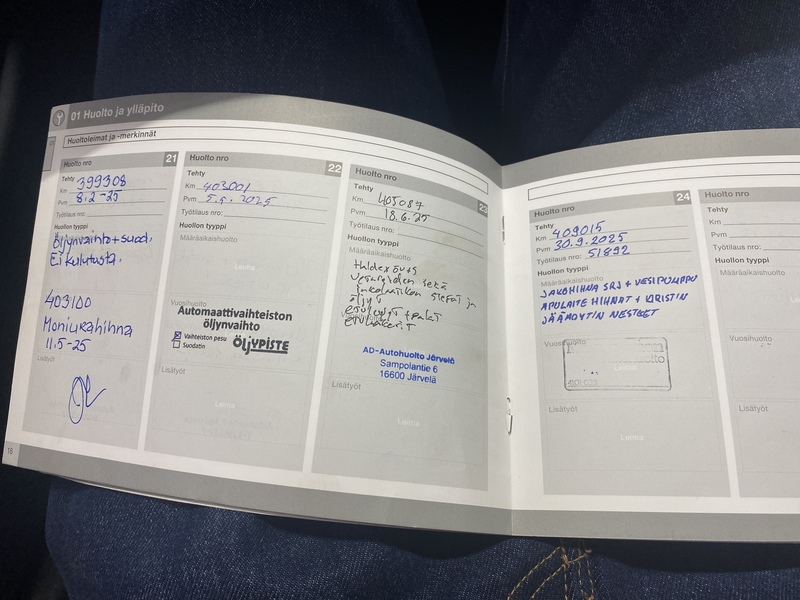 01 Huolto ja ylläpito
Huoltoleimat ja -merkinnät
Huolto nro 21
Tehty
Km 399308
Pvm 8.2-25
Työtilaus nro:
Huollon tyyppi
Öljynvaihto + suod.
Ei kulutusta.
403100
Moniurahihna
11.5-25
Lisätyöt
16
Huolto nro 22
Tehty
Km 403001
Pvm 5.5.2025
Työtilaus nro:
Huollon tyyppi
Määräaikaishuolto
Leima
Vuosihuolto
Automaattivaihteiston
öljynvaihto
Vaihteiston pesu
Suodatin
ÖLJYPISTE
Lisätyöt
Leima
Huolto nro 23
Tehty
Km 405087
Pvm 18.6.25
Työtilaus nro:
Huollon tyyppi
Haldex öv+s
sekä
öljyt
AD-Autohuolto Järvelä
Sampolantie 6
16600 Järvelä
Lisätyöt
Leima
Huolto nro 24
Tehty
Km 409015
Pvm 30.9.2025
Työtilaus nro: 51892
Huollon tyyppi
Määräaikaishuolto
JAKOHIHNA SRJ + VESIPUMPPU
APULAITE HIHNAT + KIRISTIN
JÄÄHDYTIN NESTEET
Vuosihuolto
Leima
Lisätyöt
Leima
Huolto nro
Tehty
Km
Pvm
Työtilaus nro:
Huollon tyyppi
Määräaikaishuolto
Vuosihuolto
Lisätyöt